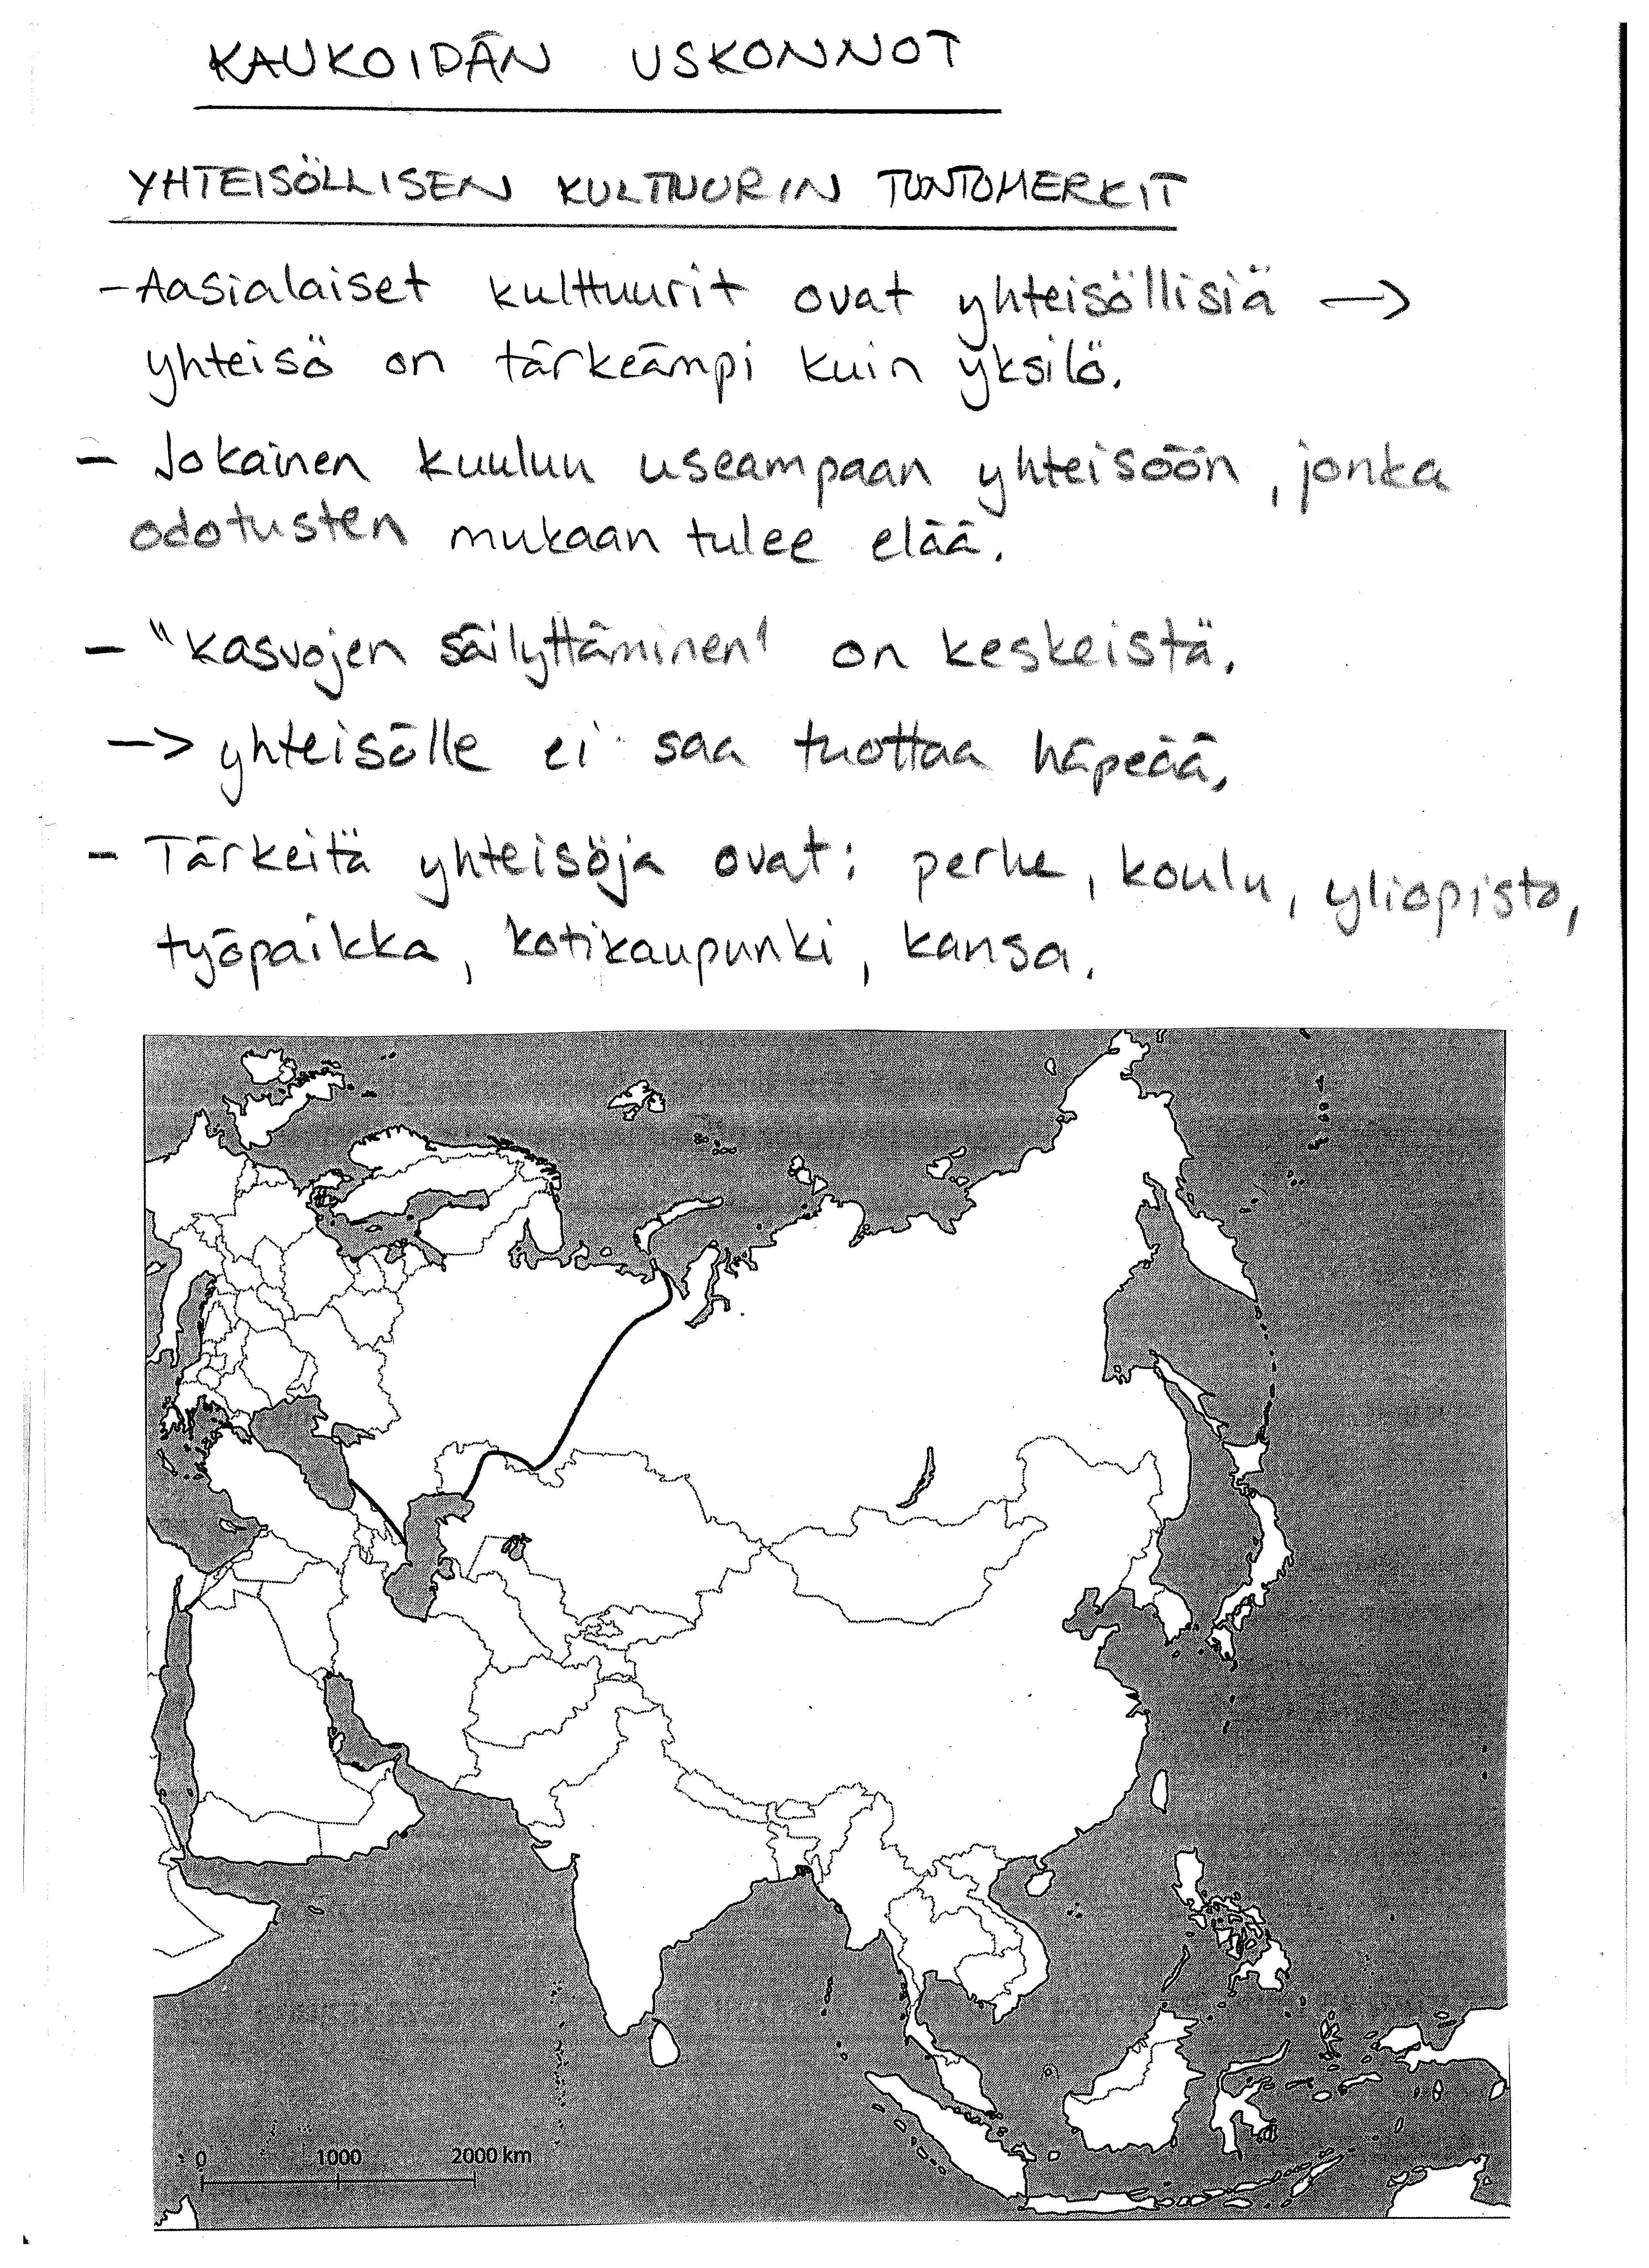 KAUKOIDÄN USKONNOT
YHTEISÖLLISEN KULTTUURIN TUNTOMERKIT
- Aasialaiset kulttuurit ovat yhteisöllisiä →
yhteisö on tärkeämpi kuin yksilö.
- Jokainen kuuluu useampaan yhteisöön, jonka
odotusten mukaan tulee elää.
- "Kasvojen säilyttäminen" on keskeistä.
-> yhteisölle ei saa tuottaa häpeää.
- Tärkeitä yhteisöjä ovat: perhe, koulu, yliopisto,
työpaikka, kotikaupunki, kansa.
0 1000 2000 km